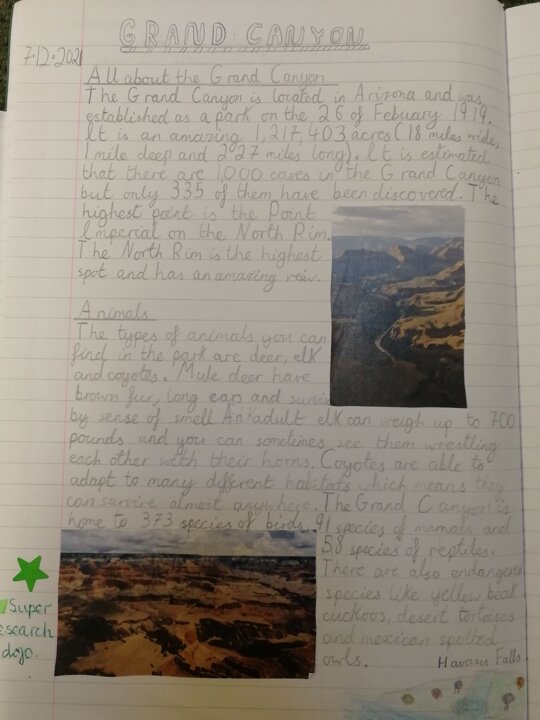 GRAND CANYON
7.12.2021
All about the Grand Canyon
The Grand Canyon is located in Arizona and was
established as a park on the 26 of Febuary 1919.
It is an amazing 1,217,403 acres (18 miles wide,
1 mile deep and 227 miles long). It is estimated
that there are 1,000 caves in the Grand Canyon
but only 335 of them have been discovered. The
highest point is the Point
Imperial on the North Rim.
The North Rim is the highest
spot and has an amazing veiw.
Animals
The types of animals you can
find in the park are deer, elk
and coyotes. Mule deer have
brown fur, long ears and
by sense of smell. An adult elk can weigh up to 700
pounds and you can sometimes see them wrestling
each other with their horns. Coyotes are able to
adapt to many different habitats which means they
can survive almost anywhere. The Grand Canyon is
home to 373 species of birds, 91 species of mamals and
58 species of reptiles.
There are also endangered
species like yellow beak
cuckoos, desert tortoises
and mexican spotted
owls.
Super
esearch
dojo.
Havasu Falls